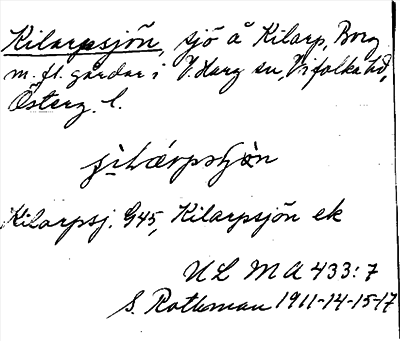 Kilarpsjön, sjö å Kilarp, Borg
m. fl. gårdar i V. Harg sn, Vifolka hd,
Österg. l.
Kilarpsj. G45, Kilarpsjön ek
UL MA 433:7
S. Rothman 1911-14-15-17